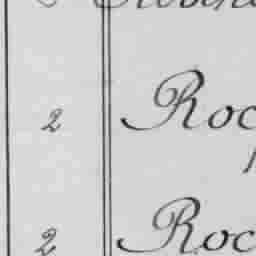 2 Roc
2 Roc